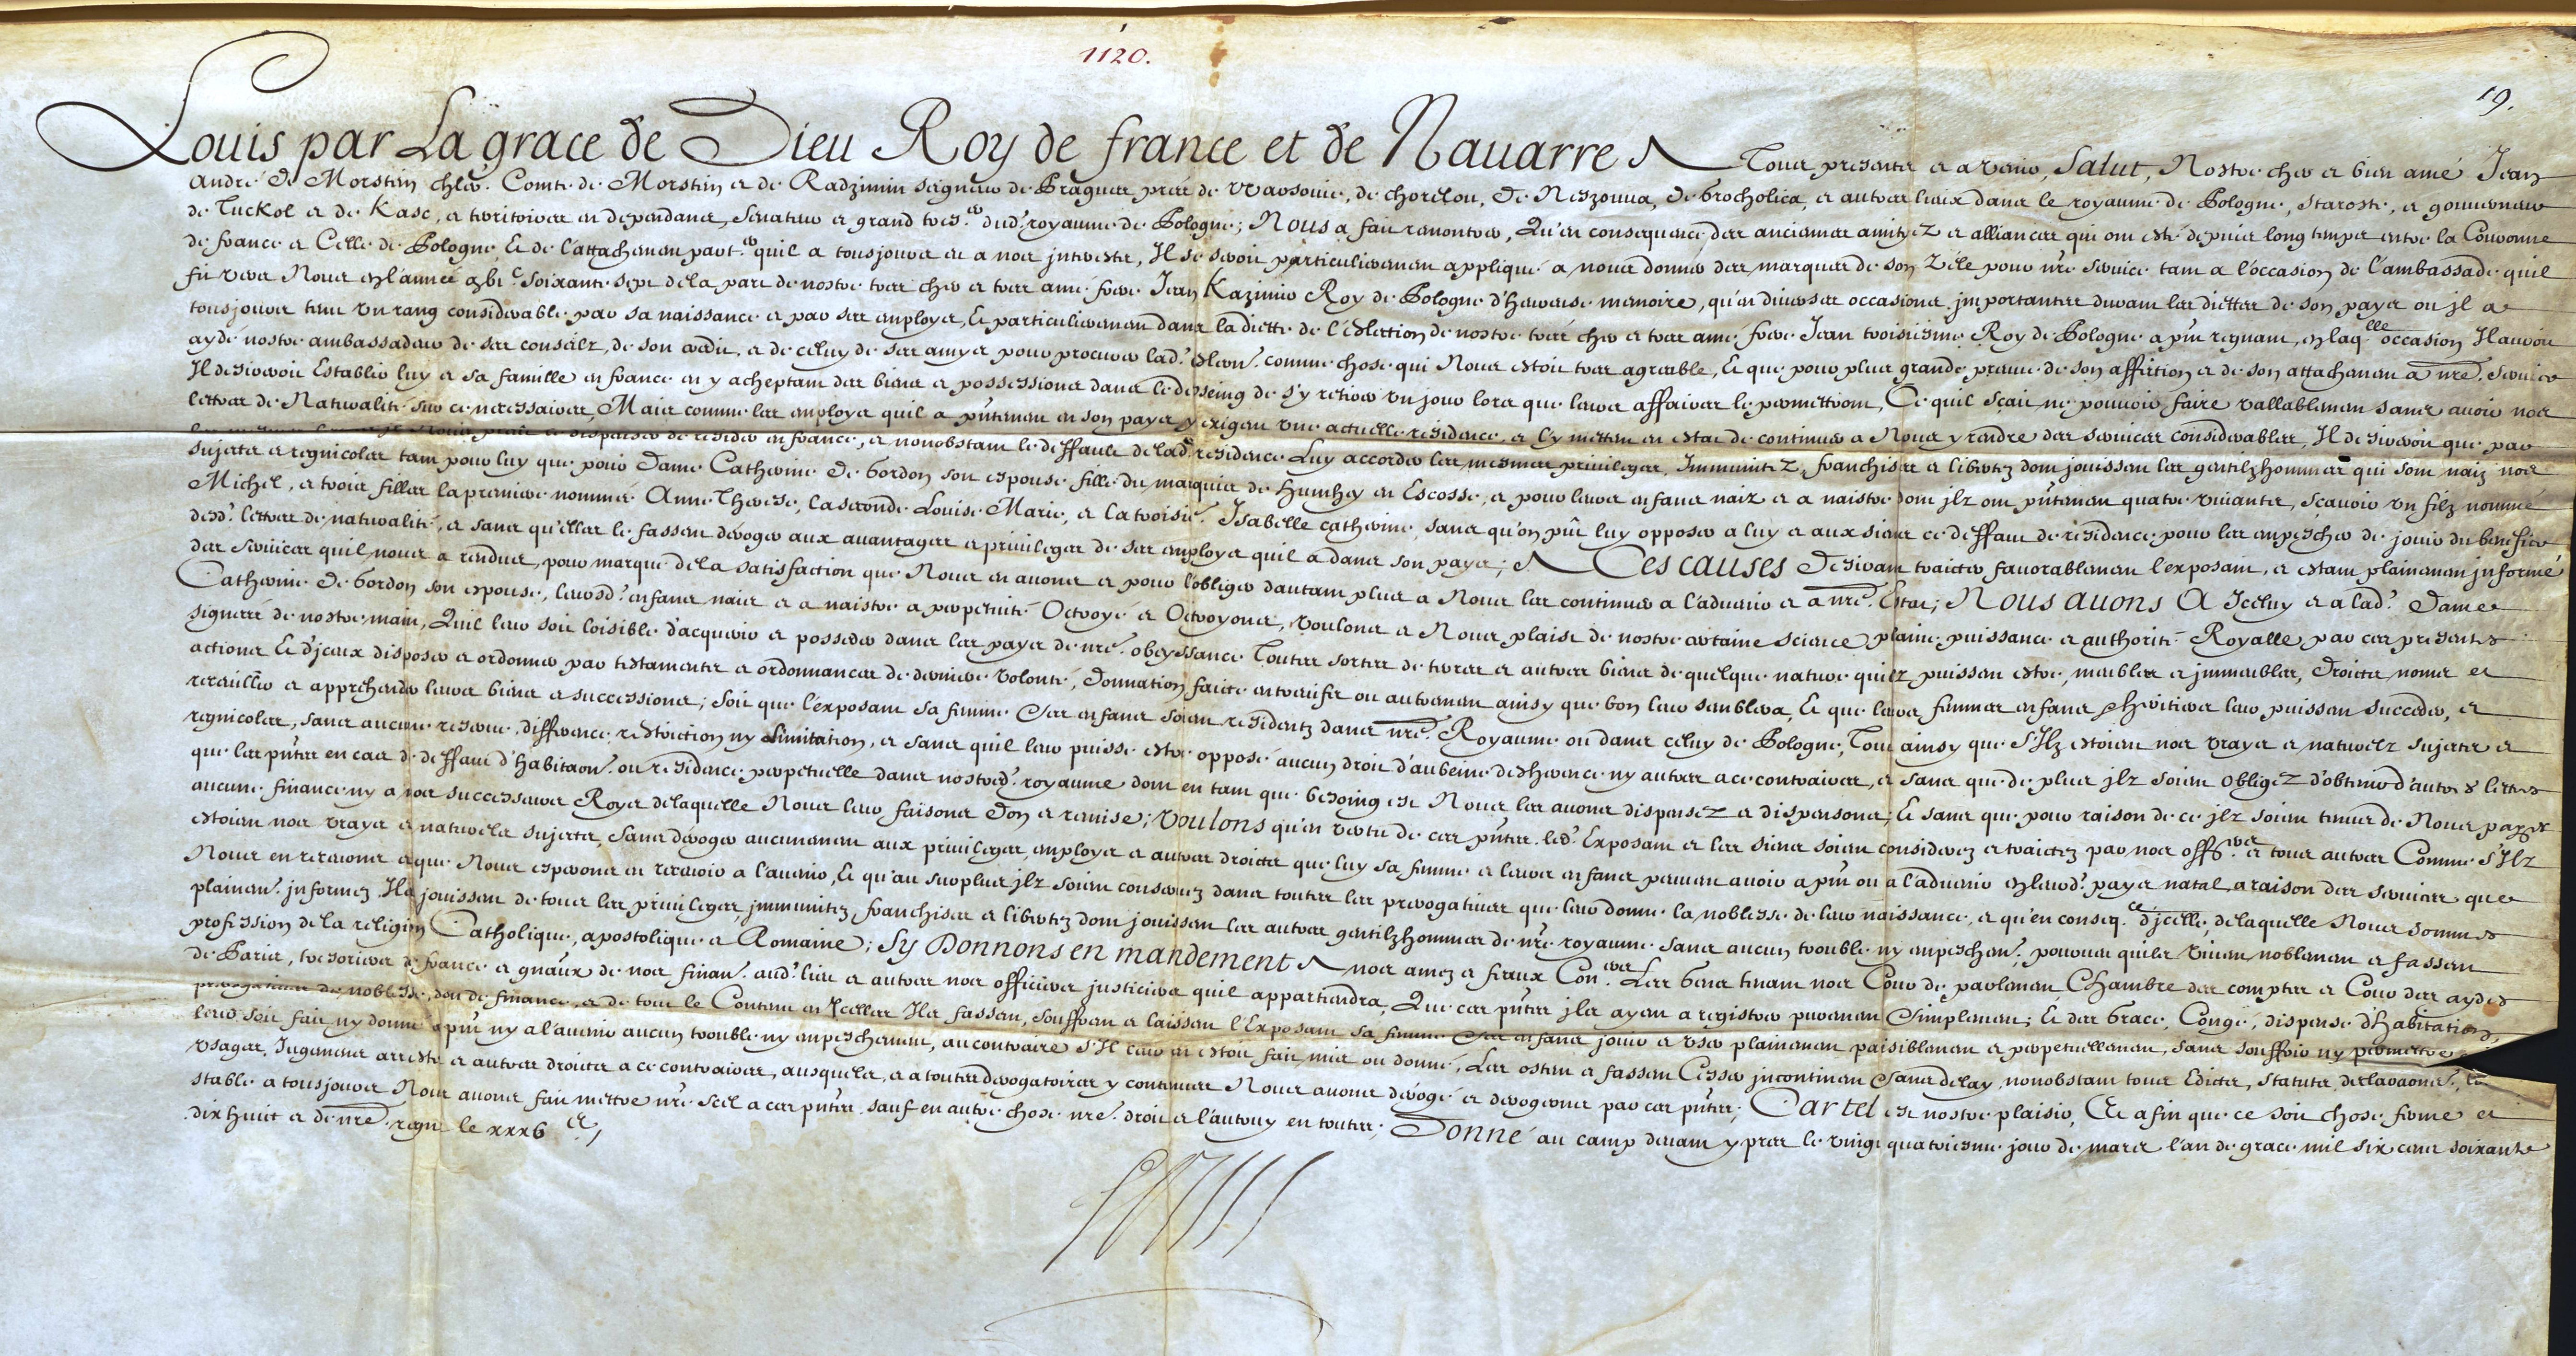 1120.
19.
Louis par La grace de Dieu Roy de france et de Nauarre A Tous presents et a venir, Salut, Nostre cher et bien amé Jean
André de Morstin chler. Comte de Morstin et de Radzimin seigneur de Pragues prez de Varsouie, de chorelou, de Neszouua, de brocholica, et autres lieux dans le royaume de Pologne, staroste, et gouuerneur
de Tuckol et de Kasc, et territoires en dependans, senateur et grand tres.er dud. royaume de Pologne; Nous a fait remontrer, Qu'en consequence des anciennes amitiez et alliances qui ont esté depuis long temps entre la Couronne
de france et Celle de Pologne, Et de l'attachement part.er quil a tousjours eu a nos jnterests, Il se seroit particulierement appliqué a nous donner des marques de son Zele pour nre seruice tant a l'occasion de l'ambassade quil
fit vers Nous en l'année gbic soixante sept de la part de nostre tres cher et tres amé frere Jean Kazimir Roy de Pologne d'heureuse memoire, qu'en diuerses occasions jmportantes durant les diettes de son pays ou jl a
tousjours tenu vn rang considerable par sa naissance et par ses employs, Et particulierement dans la diette de l'eslection de nostre tres cher et tres amé frere Jean troisiesme Roy de Pologne a pnt regnant, en laq.lle occasion Il auroit
aydé nostre ambassadeur de ses conseilz, de son credit, et de celuy de ses amys pour procurer lad. eslecon. comme chose qui Nous estoit tres agreable, Et que pour plus grande preuue de son affection et de son attachement a nre. seruice
Il desireroit Establir luy et sa famille en france en y acheptant des biens et possessions dans le desseing de s'y retirer vn jour lors que leurs affaires le permettront, Ce quil sçait ne pouuoir faire vallablement sans auoir nos
lettres de Naturalité sur ce necessaires, Mais comme les employs quil a pntement en son pays y exigent vne actuelle residence, et l'y mettent en estat de continuer a Nous y rendre des seruices considerables, Il desireroit que par
dispenser de resider en france, et nonobstant le deffault de lad. residence Luy accorder les mesmes priuileges, Immunitez, franchises et libertez dont jouissent les gentilzhommes qui sont naiz nos
sujets et regnicoles tant pour luy que pour Dame Catherine de Gordon son espouse fille du marquis de Hunthey en Escosse, et pour leurs enfans naiz et a naistre dont jlz ont pntement quatre viuants, sçauoir vn filz nommé
Michel, et trois filles la premiere nommée Anne Therese, la seconde Louise Marie, et la troisie. Isabelle catherine, sans qu'on pût luy opposer a luy et aux siens ce deffaut de residence pour les empescher de jouir du benefice
desd. lettres de naturalité, et sans qu'elles le fassent déroger aux auantages et priuileges de ses employs quil a dans son pays; A Ces causes Desirant traicter fauorablement l'exposant, et estant plainement jnformé
des seruices quil nous a rendus, pour marque de la satisfaction que Nous en auons et pour l'obliger dautant plus a Nous les continuer a l'aduenir et a nre. Estat; Nous auons A Jceluy et a lad. Dame
Catherine de Gordon son espouse, leursd. enfans naiz et a naistre a perpetuité Octroyé et Octroyons, voulons et Nous plaist de nostre certaine science plaine puissance et authorité Royalle par ces presentes
signeés de nostre main, Quil leur soit loisible d'acquerir et posseder dans les pays de nre. obeyssance Toutes sortes de terres et autres biens de quelque nature quilz puissent estre, meubles et jmmeubles, droicts noms et
actions Et d'jceux disposer et ordonner par testaments et ordonnances de derniere volonté, donnation faicte entreuifs ou autrement ainsy que bon leur semblera, Et que leurs femmes enfans heritiers leur puissent succeder, et
receuillir et apprehender leurs biens et successions; soit que l'exposant sa femme Ses enfans soient residents dans nre. Royaume ou dans celuy de Pologne, Tout ainsy que s'Ilz estoient nos vrays et naturelz sujets et
regnicoles, sans aucune reserue, difference restriction ny limitation, et sans quil leur puisse estre opposé aucun droit d'aubeine desherence ny autres a ce contraires, et sans que de plus jlz soient obligez d'obtenir d'autres lettres
que les pntes en cas de deffaut d'habitaon. ou residence perpetuelle dans nostred. royaume dont en tant que besoing est Nous les auons dispensez et dispensons; Et sans que pour raison de ce jlz soient tenus de Nous payer
aucune finance ny a nos successeurs Roys de laquelle Nous leur faisons don et remise; Voulons qu'en vertu de ces pntes led. Exposant et les siens soient considerez et traictez par nos offrs. et tous autres Comme s'Ilz
estoient nos vrays et naturels sujets, sans déroger aucunement aux priuileges employs et autres droicts que luy sa femme et leurs enfans peuuent auoir a pnt ou a l'aduenir en leurd. pays natal, a raison des seruices que
Nous en receuons et que Nous esperons en receuoir a l'auenir, Et qu'au surplus jlz soient conseruez dans toutes les prerogatiues que leur donne la noblesse de leur naissance, et qu'en conseq.ce d'jcelle, de laquelle Nous sommes
plainemt. jnformez Ilz jouissent de tous les priuileges, jmmunitez franchises et libertez dont jouissent les autres gentilzhommes de nre. royaume sans aucun trouble ny empeschemt. pouruu quils viuent noblement et fassent
profession de la religion Catholique, apostolique et Romaine; Sy Donnons en mandement A nos amez et feaux Con.ers Les Gens tenans nos Cour de parlement Chambre des comptes et Cour des aydes
de Paris, tresoriers de france et gnaux de nos finan. aud. lieu et autres nos officiers justiciers quil appartiendra, Que ces pntes jls ayent a registrer purement Simplement; Et des Grace, Congé, dispense d'habitation,
de noblesse, don de finance, et de tout le Contenu en Jcelles Ils fassent, souffrent et laissent l'Exposant sa femme Ses enfans jouir et vser plainement paisiblement et perpetuellement, sans souffrir ny permettre
leur soit fait ny donné a pnt ny a l'auenir aucun trouble ny empeschement, au contraire s'Il leur en estoit fait, mis ou donné, Les ostent et fassent Cesser jncontinent sans delay, nonobstant tous Edicts, statuts, declaraons.,
vsages, Jugemens arrests et autres droicts a ce contraires, ausquels, et a toutes derogatoires y contenues Nous auons dérogé et derogeons par ces pntes; Car tel est nostre plaisir, Et afin que ce soit chose ferme et
stable a tousjours Nous auons fait mettre nre scel a ces pntes. sauf en autre chose nre. droit et l'autruy en toutes; Donné au camp deuant ypres le vingt quatriesme jour de mars l'an de grace mil six cens soixante
dix huit et de nre. regne le xxxbe./
Louis